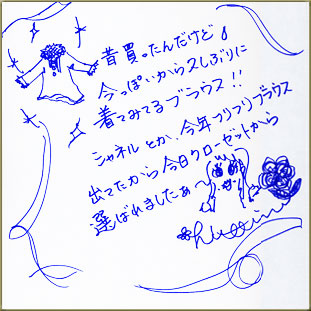 昔買ったんだけど♪
今っぽいから久しぶりに
着てみてるブラウス!!
シャネルとか、今年フリフリブラウス
出てたから今日クローゼットから
選ばれましたぁ〜